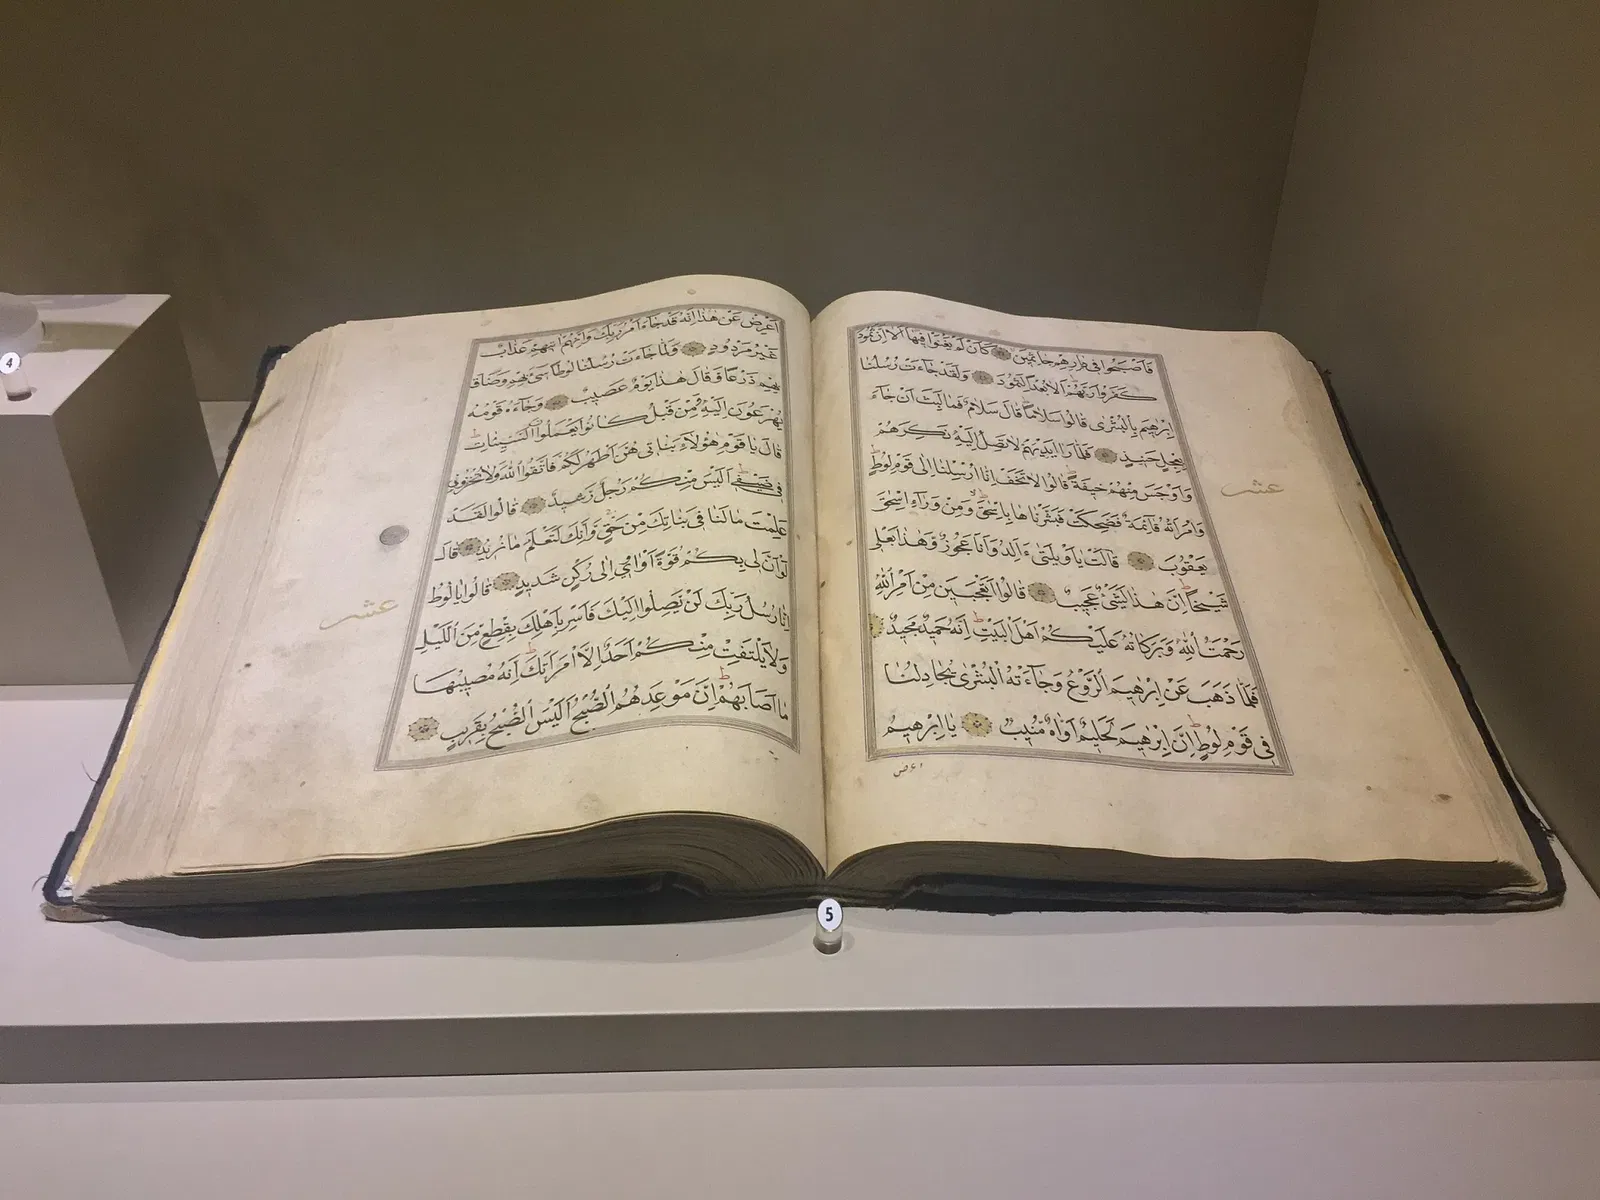 فَاَصْبَحُوا فِى دِيَارِهِمْ جَاثِمِينَ كَاَنْ لَمْ يَغْنَوْا فِيهَا اَلَا اِنَّ ثَمُودَ
كَفَرُوا رَبَّهُمْ اَلَا بُعْدًا لِثَمُودَ وَلَقَدْ جَاءَتْ رُسُلُنَا
اِبْرٰهِيمَ بِالْبُشْرٰى قَالُوا سَلَامًا قَالَ سَلَامٌ فَمَا لَبِثَ اَنْ جَاءَ
بِعِجْلٍ حَنِيذٍ فَلَمَّا رَاٰ اَيْدِيَهُمْ لَا تَصِلُ اِلَيْهِ نَكِرَهُمْ
وَاَوْجَسَ مِنْهُمْ خِيفَةً قَالُوا لَا تَخَفْ اِنَّا اُرْسِلْنَا اِلٰى قَوْمِ لُوطٍ
وَامْرَاَتُهُ قَائِمَةٌ فَضَحِكَتْ فَبَشَّرْنَاهَا بِاِسْحٰقَ وَمِنْ وَرَاءِ اِسْحٰقَ
يَعْقُوبَ قَالَتْ يَا وَيْلَتٰى ءَاَلِدُ وَاَنَا عَجُوزٌ وَهٰذَا بَعْلِى
شَيْخًا اِنَّ هٰذَا لَشَىْءٌ عَجِيبٌ قَالُوا اَتَعْجَبِينَ مِنْ اَمْرِ اللّٰهِ
رَحْمَتُ اللّٰهِ وَبَرَكَاتُهُ عَلَيْكُمْ اَهْلَ الْبَيْتِ اِنَّهُ حَمِيدٌ مَجِيدٌ
فَلَمَّا ذَهَبَ عَنْ اِبْرٰهِيمَ الرَّوْعُ وَجَاءَتْهُ الْبُشْرٰى يُجَادِلُنَا
فِى قَوْمِ لُوطٍ اِنَّ اِبْرٰهِيمَ لَحَلِيمٌ اَوَّاهٌ مُنِيبٌ يَا اِبْرٰهِيمُ
اعرض
عشر
اَعْرِضْ عَنْ هٰذَا اِنَّهُ قَدْ جَاءَ اَمْرُ رَبِّكَ وَاِنَّهُمْ اٰتِيهِمْ عَذَابٌ
غَيْرُ مَرْدُودٍ وَلَمَّا جَاءَتْ رُسُلُنَا لُوطًا سِىءَ بِهِمْ وَضَاقَ
بِهِمْ ذَرْعًا وَقَالَ هٰذَا يَوْمٌ عَصِيبٌ وَجَاءَهُ قَوْمُهُ
يُهْرَعُونَ اِلَيْهِ وَمِنْ قَبْلُ كَانُوا يَعْمَلُونَ السَّيِّئَاتِ
قَالَ يَا قَوْمِ هٰؤُلَاءِ بَنَاتِى هُنَّ اَطْهَرُ لَكُمْ فَاتَّقُوا اللّٰهَ وَلَا تُخْزُونِ
فِى ضَيْفِى اَلَيْسَ مِنْكُمْ رَجُلٌ رَشِيدٌ قَالُوا لَقَدْ
عَلِمْتَ مَا لَنَا فِى بَنَاتِكَ مِنْ حَقٍّ وَاِنَّكَ لَتَعْلَمُ مَا نُرِيدُ قَالَ
لَوْ اَنَّ لِى بِكُمْ قُوَّةً اَوْ اٰوِى اِلٰى رُكْنٍ شَدِيدٍ قَالُوا يَا لُوطُ
اِنَّا رُسُلُ رَبِّكَ لَنْ يَصِلُوا اِلَيْكَ فَاَسْرِ بِاَهْلِكَ بِقِطْعٍ مِنَ اللَّيْلِ
وَلَا يَلْتَفِتْ مِنْكُمْ اَحَدٌ اِلَّا امْرَاَتَكَ اِنَّهُ مُصِيبُهَا
مَا اَصَابَهُمْ اِنَّ مَوْعِدَهُمُ الصُّبْحُ اَلَيْسَ الصُّبْحُ بِقَرِيبٍ
عشر
4
5